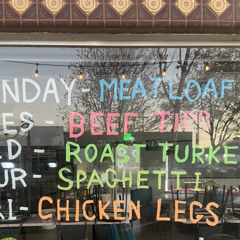 NDAY - MEATLOAF
ES - BEEF TIPS
D - ROAST TURKE
UR - SPAGHETTI
RI - CHICKEN LEGS